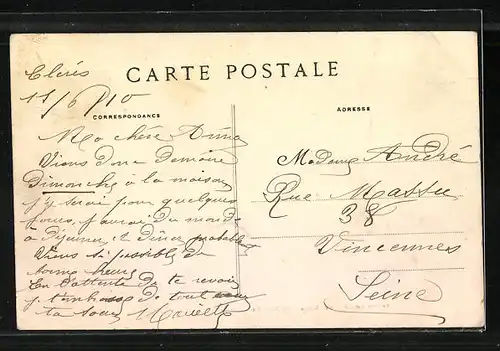 Clérès
CARTE POSTALE
11/6/10
CORRESPONDANCE
ADRESSE
Ma chère Anna
Viens donc demain
Dimanche à la maison
j'y serai pour quelques
jours, j'aurai du monde
à déjeuner et dîner probablement
Viens si possible de
bonne heure
En attendant de te revoir
je t'embrasse de tout
ta sœur
Madame André
Rue Massu
38
Vincennes
Seine